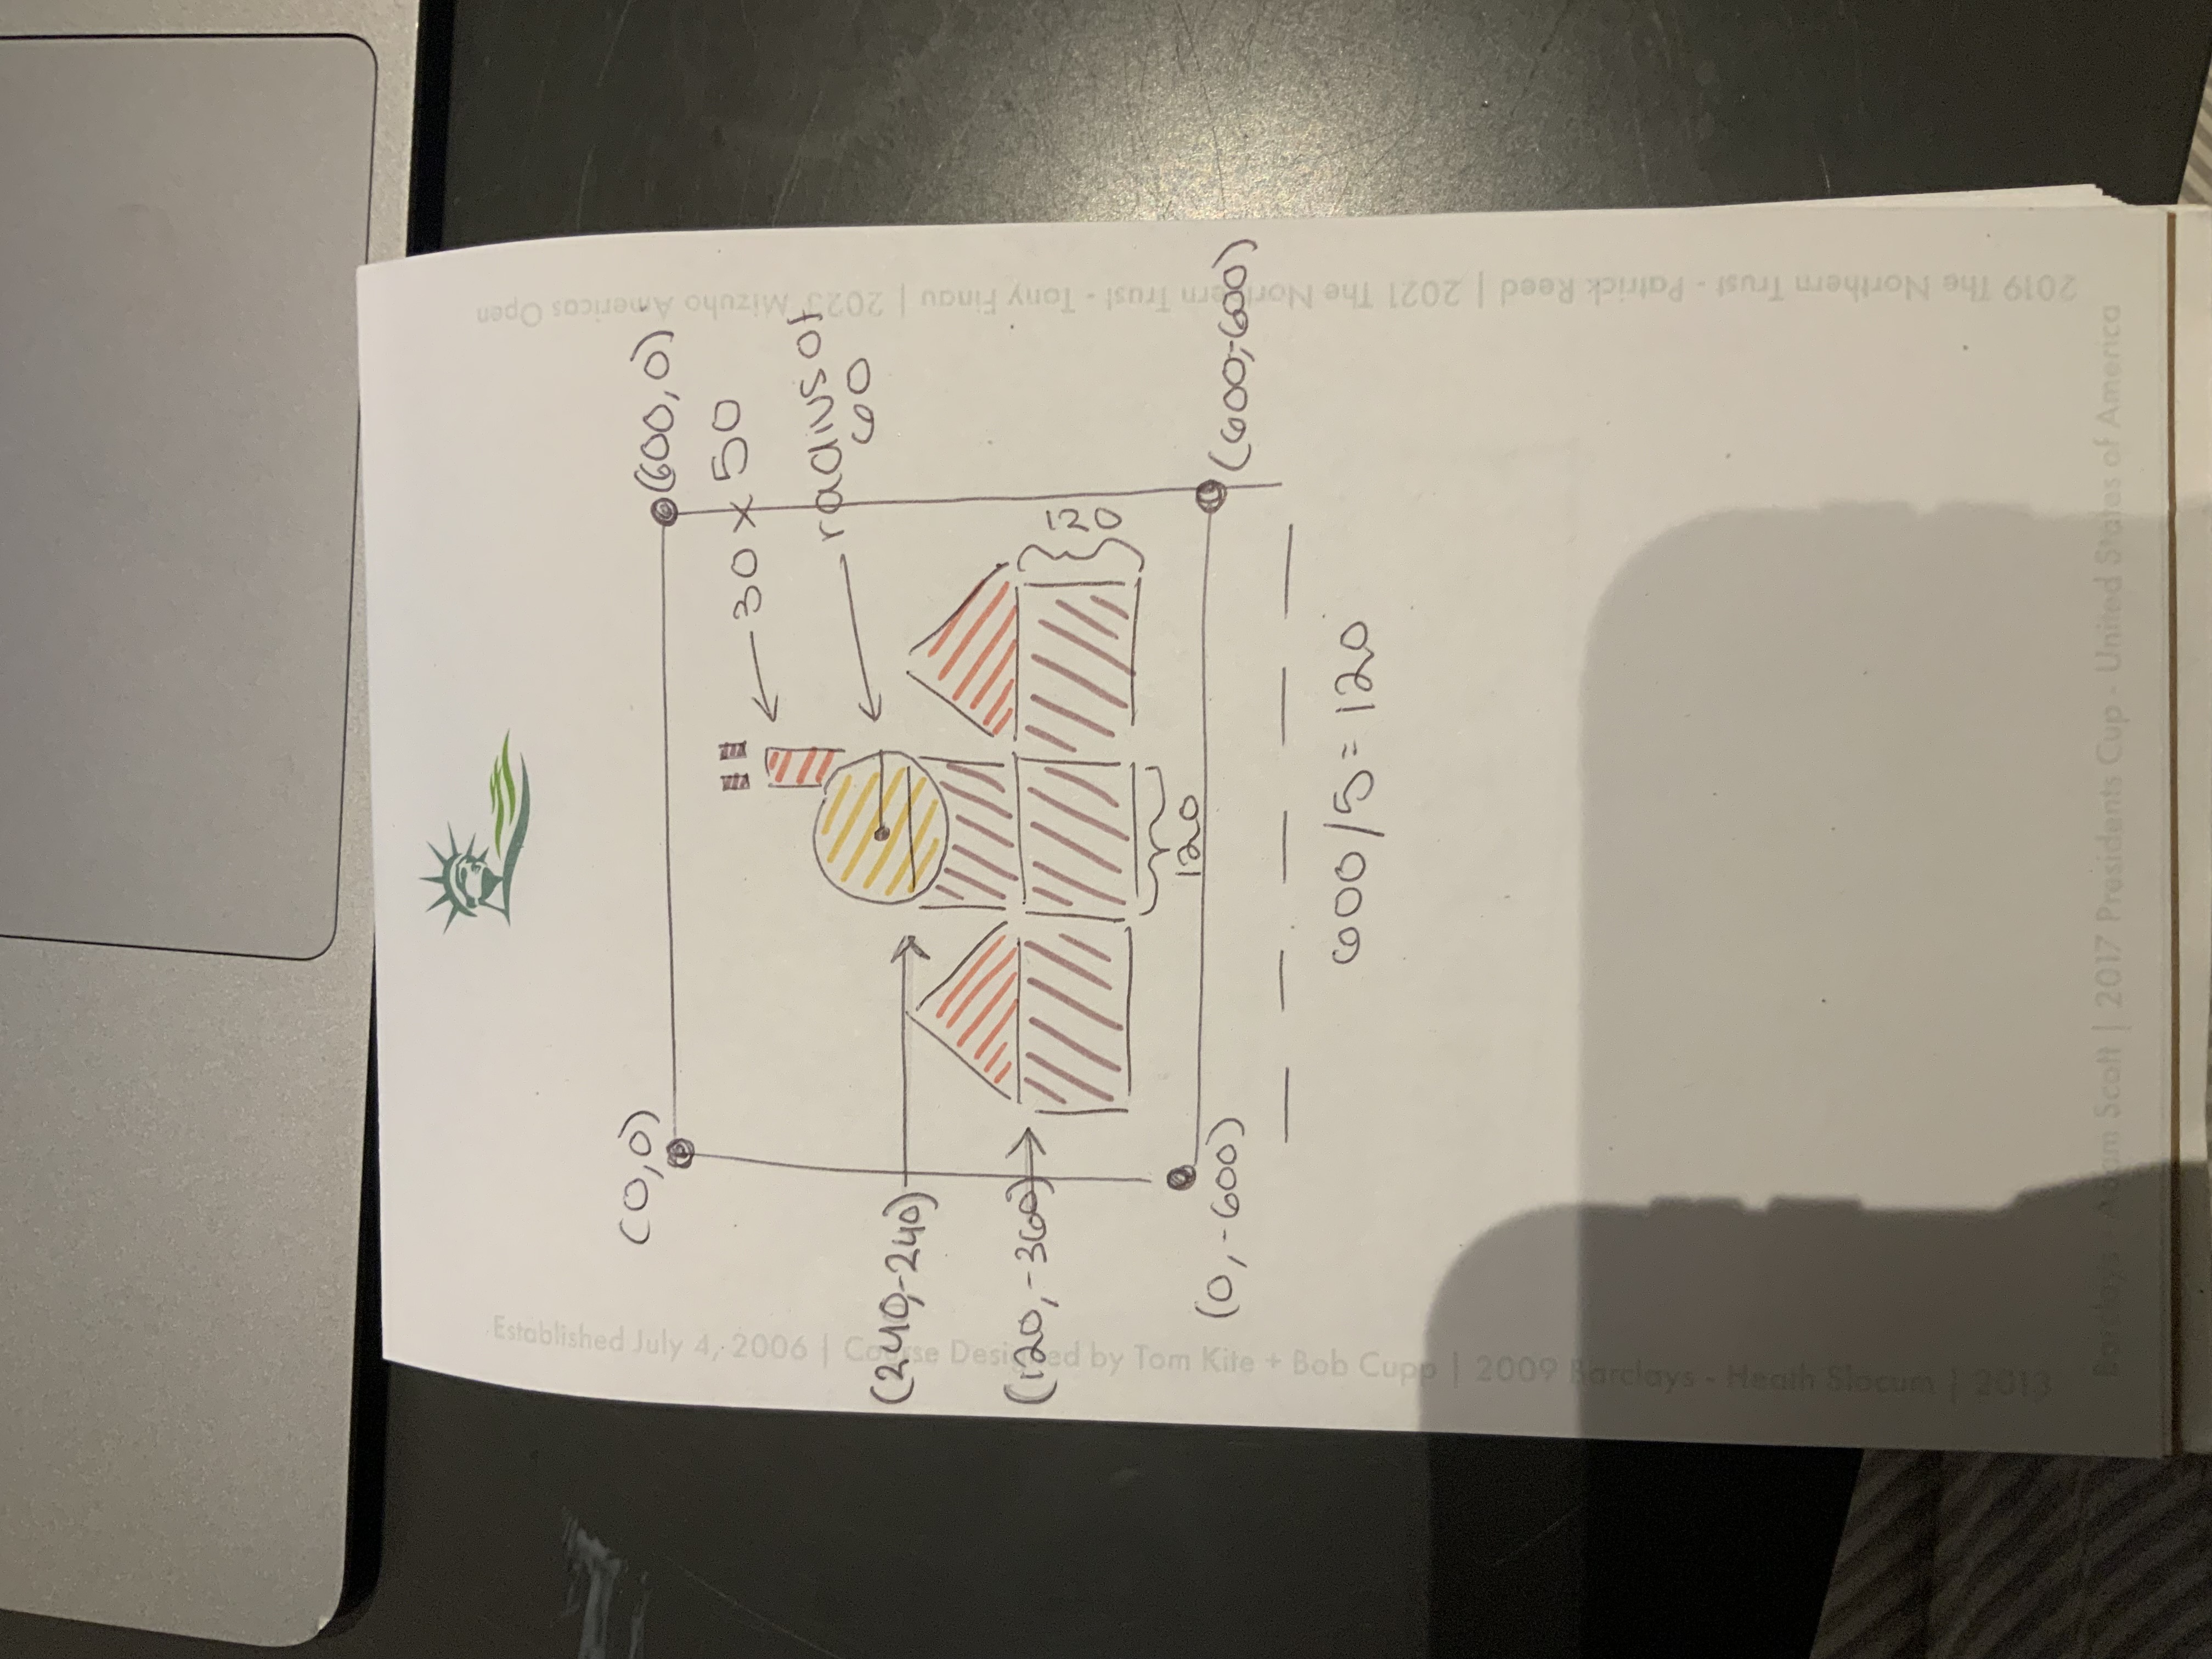 (0,0)
(600,0)
30 x 50
radius of
60
(240,-240)
(120,-360)
120
120
(0,-600)
(600,-600)
600/5=120
Established July 4, 2006 | Course Designed by Tom Kite + Bob Cupp | 2009 Barclays - Heath Slocum | 2013
Barclays - Adam Scott | 2017 Presidents Cup - United States of America
2019 The Northern Trust - Patrick Reed | 2021 The Northern Trust - Tony Finau | 2023 Mizuho Americas Open